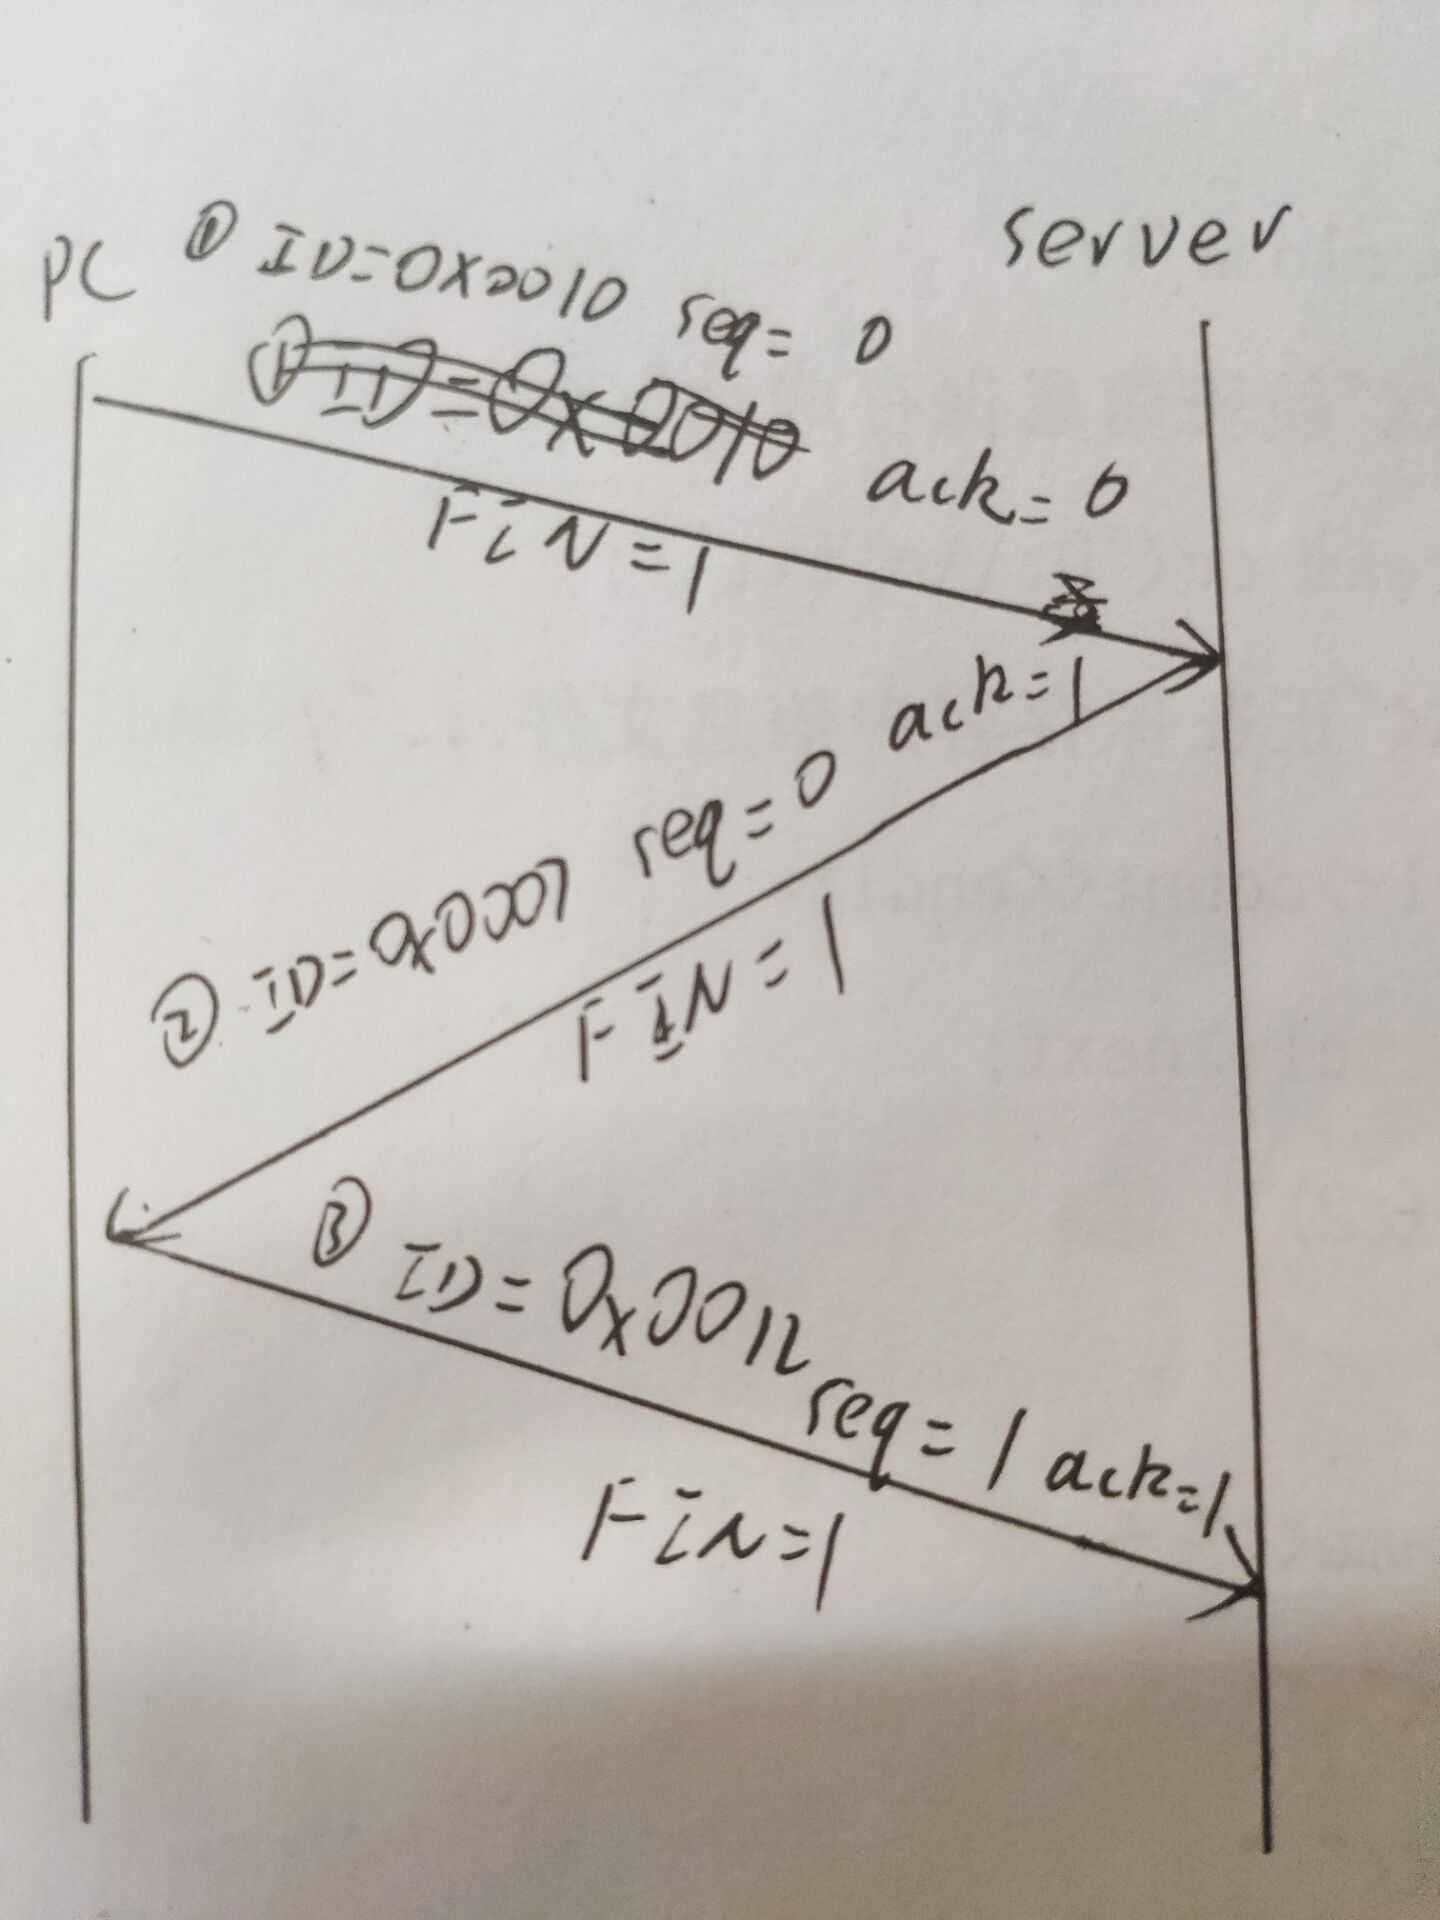 PC
server
① ID=0x0010 seq= 0
① ID=0x0010
ack=0
FIN=1
ack=1
② ID=0x0007 seq=0
FIN=1
③ ID=0x0012
seq=1 ack=1
FIN=1